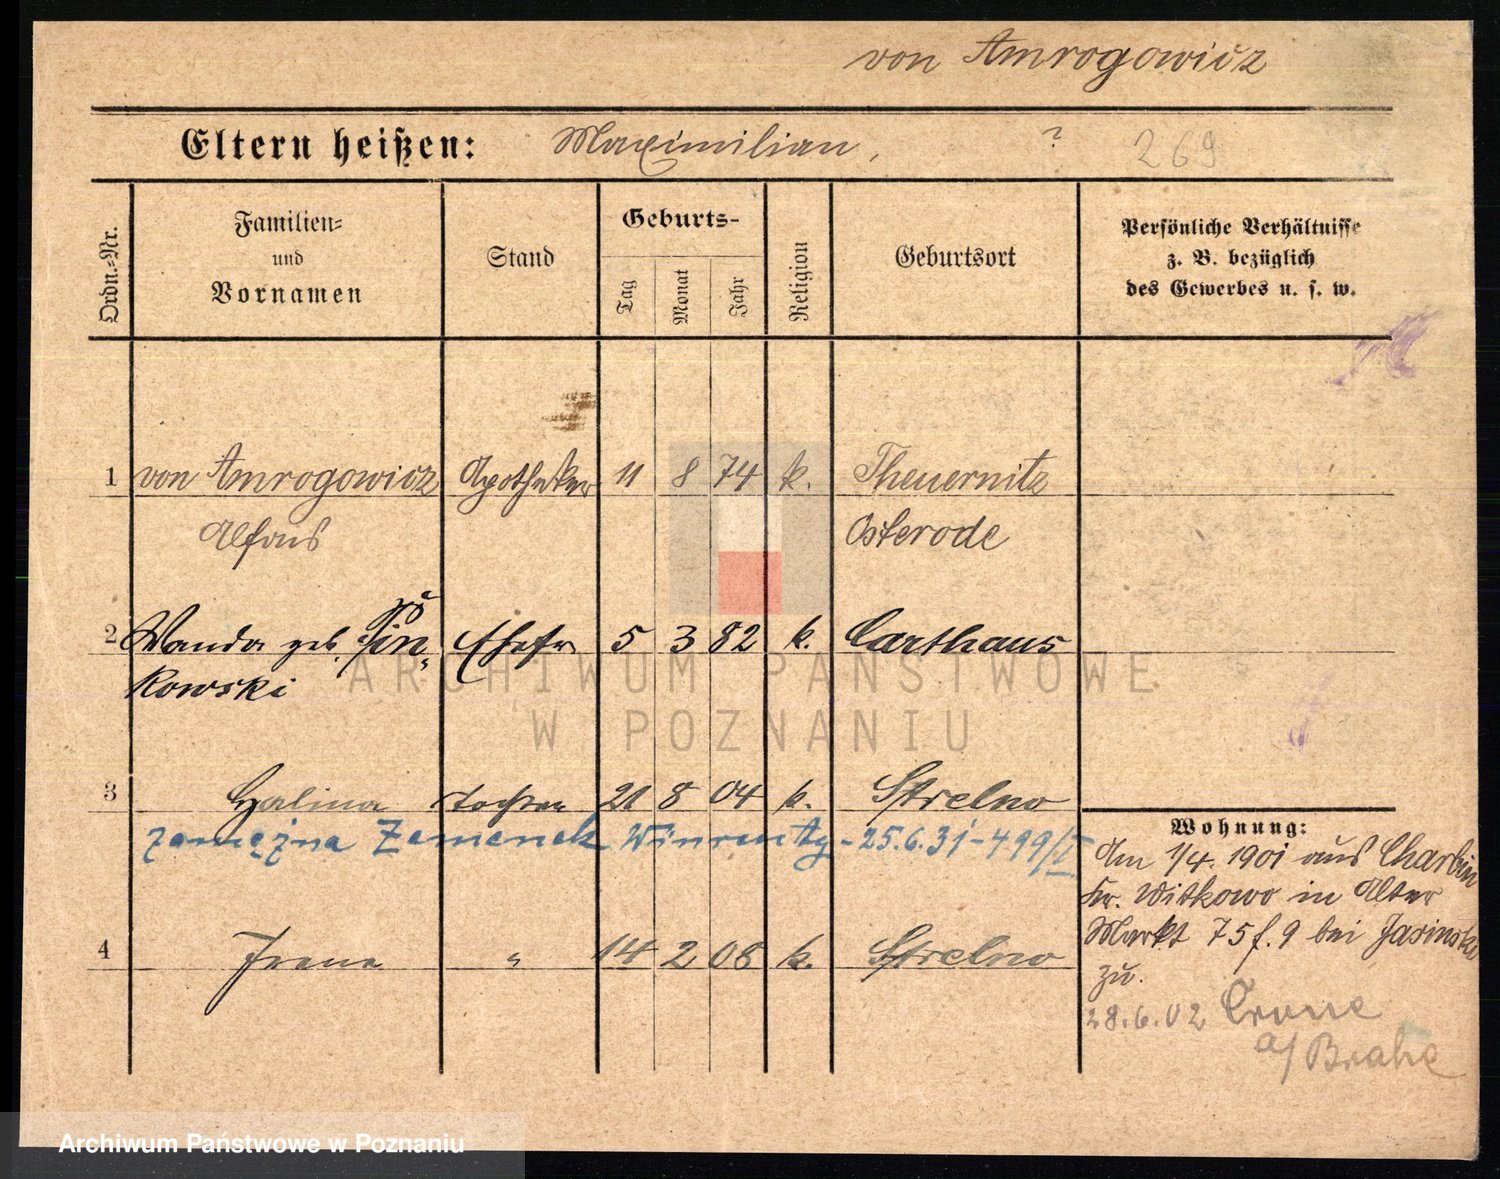 von Amrogowicz
Eltern heißen: Maximilian, ? 269
Ordn.-Nr.
Familien-
und
Vornamen
Stand
Geburts-
Tag
Monat
Jahr
Religion
Geburtsort
Persönliche Verhältnisse
z. B. bezüglich
des Gewerbes u. s. w.
1 von Amrogowicz Apotheker 11 8 74 k. Theuernitz
Alfons Osterode
2 Wanda geb. Ehefr 5 3 82 k. Carthaus
kowski
3 Halina Tochter 21 8 04 k. Strelno
zamężna Zemenek - 25.6.31 - 499/I
4 Irena " 14 2 08 k. Strelno
Wohnung:
Am 1/4. 1901 aus Charbin
Kr. Witkowo in Alter
Markt 75 f. 9 bei Jasinska
zu.
28.6.02 Crone
a/ Brahe
ARCHIWUM PAŃSTWOWE
W POZNANIU
Archiwum Państwowe w Poznaniu